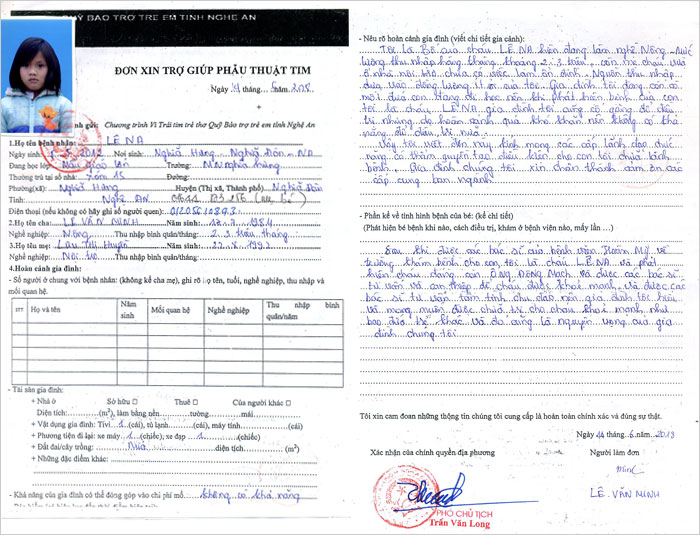 QUỸ BẢO TRỢ TRẺ EM TỈNH NGHỆ AN
ĐƠN XIN TRỢ GIÚP PHẪU THUẬT TIM
Ngày 14 tháng 6 năm 2013
gửi: Chương trình Vì Trái tim trẻ thơ Quỹ Bảo trợ trẻ em tỉnh Nghệ An
1.Họ tên bệnh nhân: LÊ NA
Ngày sinh: 2012 Nơi sinh: Nghĩa Hưng Nghĩa Đàn - NA
Đang học lớp: Trường: MN nghĩa hưng
Thường trú tại số nhà: Xóm 15 Đường:
Phường(xã): Nghĩa Hưng Huyện (Thị xã, Thành phố) Nghĩa Đàn
Tỉnh: Nghệ An
Điện thoại (nếu không có hãy ghi số người quen):
2.Họ tên cha: LÊ VĂN MINH Năm sinh: 1984
Nghề nghiệp: Nông Thu nhập bình quân/tháng: 2-3 triệu/tháng
3.Họ tên mẹ: Lưu Thị Huyền Năm sinh: 1992
Nghề nghiệp: Nội trợ Thu nhập bình quân/tháng:
4.Hoàn cảnh gia đình:
- Số người ở chung với bệnh nhân: (không kể cha mẹ), ghi rõ họ tên, tuổi, nghề nghiệp, thu nhập và
mối quan hệ.
STT Họ và tên Năm sinh Mối quan hệ Nghề nghiệp Thu nhập bình quân/năm
- Tài sản gia đình:
+ Nhà ở Sở hữu Thuê Của người khác
Diện tích: (m²), làm bằng nền tường mái
+ Vật dụng gia đình: Tivi 1 (cái), tủ lạnh (cái), máy tính (cái)
+ Phương tiện đi lại: xe máy 1 (chiếc); xe đạp 1 (chiếc)
+ Đất đai/cây trồng: diện tích (m²)
+ Những đặc điểm khác:
- Khả năng của gia đình có thể đóng góp vào chi phí mổ không có khả năng
- Nêu rõ hoàn cảnh gia đình (viết chi tiết gia cảnh):
Tôi là Bố của cháu LÊ NA hiện đang làm nghề Nông - mức
lương thu nhập hàng tháng khoảng 2-3 triệu, còn mẹ cháu
ở nhà nội trợ chưa có việc làm ổn định. Nguồn thu nhập
dựa vào đồng lương ít ỏi của tôi. Gia đình tôi đang còn có
một đứa con đang đi học nên khi phát hiện bệnh của con
tôi là cháu LÊ NA gia đình tôi cũng cố gắng để điều
trị nhưng do hoàn cảnh khó khăn nên không có khả
năng để điều trị nữa.
Vậy tôi viết đơn này kính mong các cấp lãnh đạo chức
năng có thẩm quyền tạo điều kiện cho con tôi chữa khỏi
bệnh. Gia đình chúng tôi xin chân thành cảm ơn các
cấp cùng ban ngành
- Phần kể về tình hình bệnh của bé: (kể chi tiết)
(Phát hiện bệnh khi nào, cách điều trị, khám ở bệnh viện nào, mấy lần …)
Sau khi được các bác sĩ của bệnh viện Hoàn Mỹ về
trường khám bệnh cho con tôi là cháu LÊ NA và phát
hiện cháu đang còn Ống Động Mạch và được các bác sĩ
tư vấn và can thiệp để cháu được khỏe mạnh và được các
bác sĩ tư vấn tâm tình chu đáo nên gia đình tôi hiểu
và mong muốn được chữa trị cho cháu khỏe mạnh như
bao đứa trẻ khác và đó cũng là nguyện vọng của gia
đình chúng tôi
Tôi xin cam đoan những thông tin chúng tôi cung cấp là hoàn toàn chính xác và đúng sự thật.
Ngày 14 tháng 6 năm 2013
Xác nhận của chính quyền địa phương Người làm đơn
Minh
PHÓ CHỦ TỊCH
Trần Văn Long
LÊ VĂN MINH